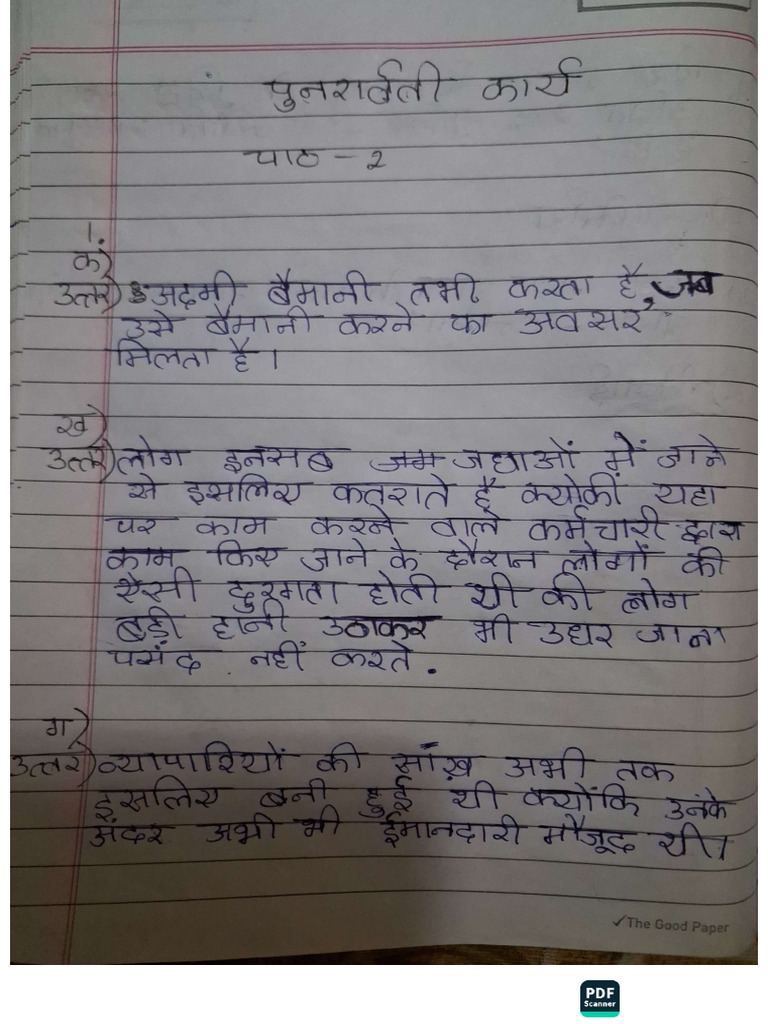 पुनरार्वती कार्य
पाठ - 2
1.
क)
उत्तर) अदमी बैमानी तभी करता है, जब
उसे बैमानी करने का अवसर
मिलता है।
ख)
उत्तर) लोग इनसब जगाहओं में जाने
से इसलिए कतराते है क्योकी यहा
पर काम करने वाले कर्मचारी द्वारा
काम किए जाने के दौरान लोगों की
ऐसी दुरगता होती थी की लोग
बड़ी हानी उठाकर भी उधर जाना
पसंद नहीं करते.
ग)
उत्तर) व्यापारियों की साँख अभी तक
इसलिए बनी हुई थी क्योंकि उनके
अंदर अभी भी ईमानदारी मौजूद थी।
✓The Good Paper
PDF
Scanner